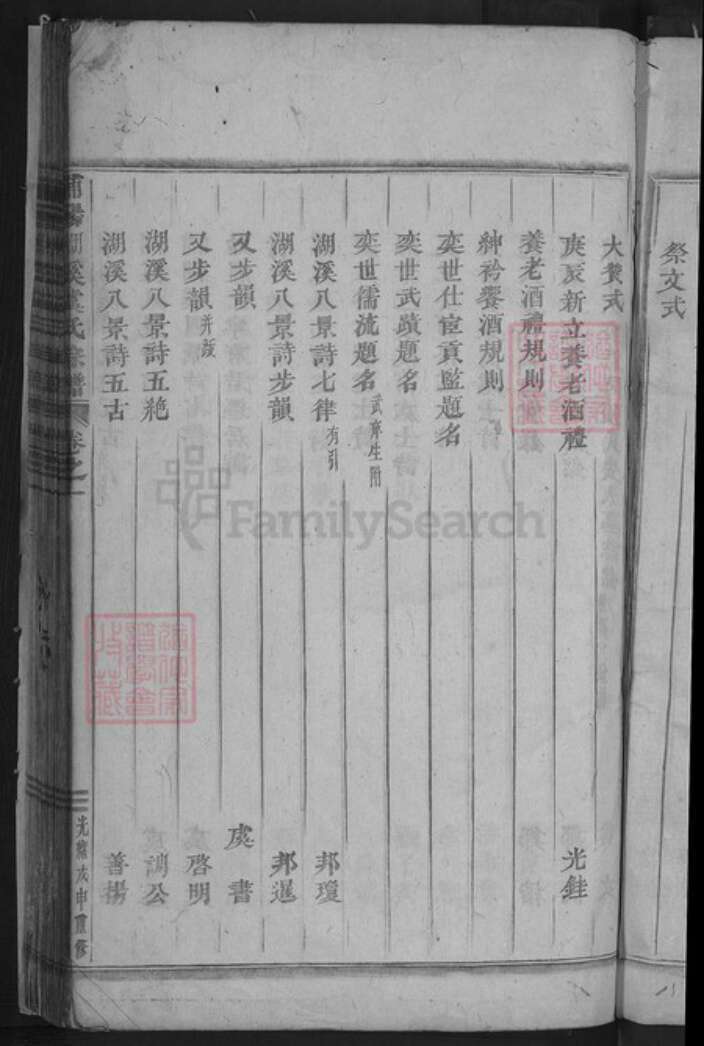 祭文式
大贊式
庚辰新立養老酒禮 光銈
養老酒禮規則
紳衿饗酒規則
奕世仕宦貢監題名
奕世武蹟題名
奕世儒流題名 武庠生附
湖溪八景詩七律 有引 邦瓊
湖溪八景詩步韻 邦暹
又步韻 虞書
又步韻 并跋 啓明
湖溪八景詩五絶 調公
湖溪八景詩五古 善揚
湖溪虞氏宗譜 卷之
光緒戊申重修
FamilySearch